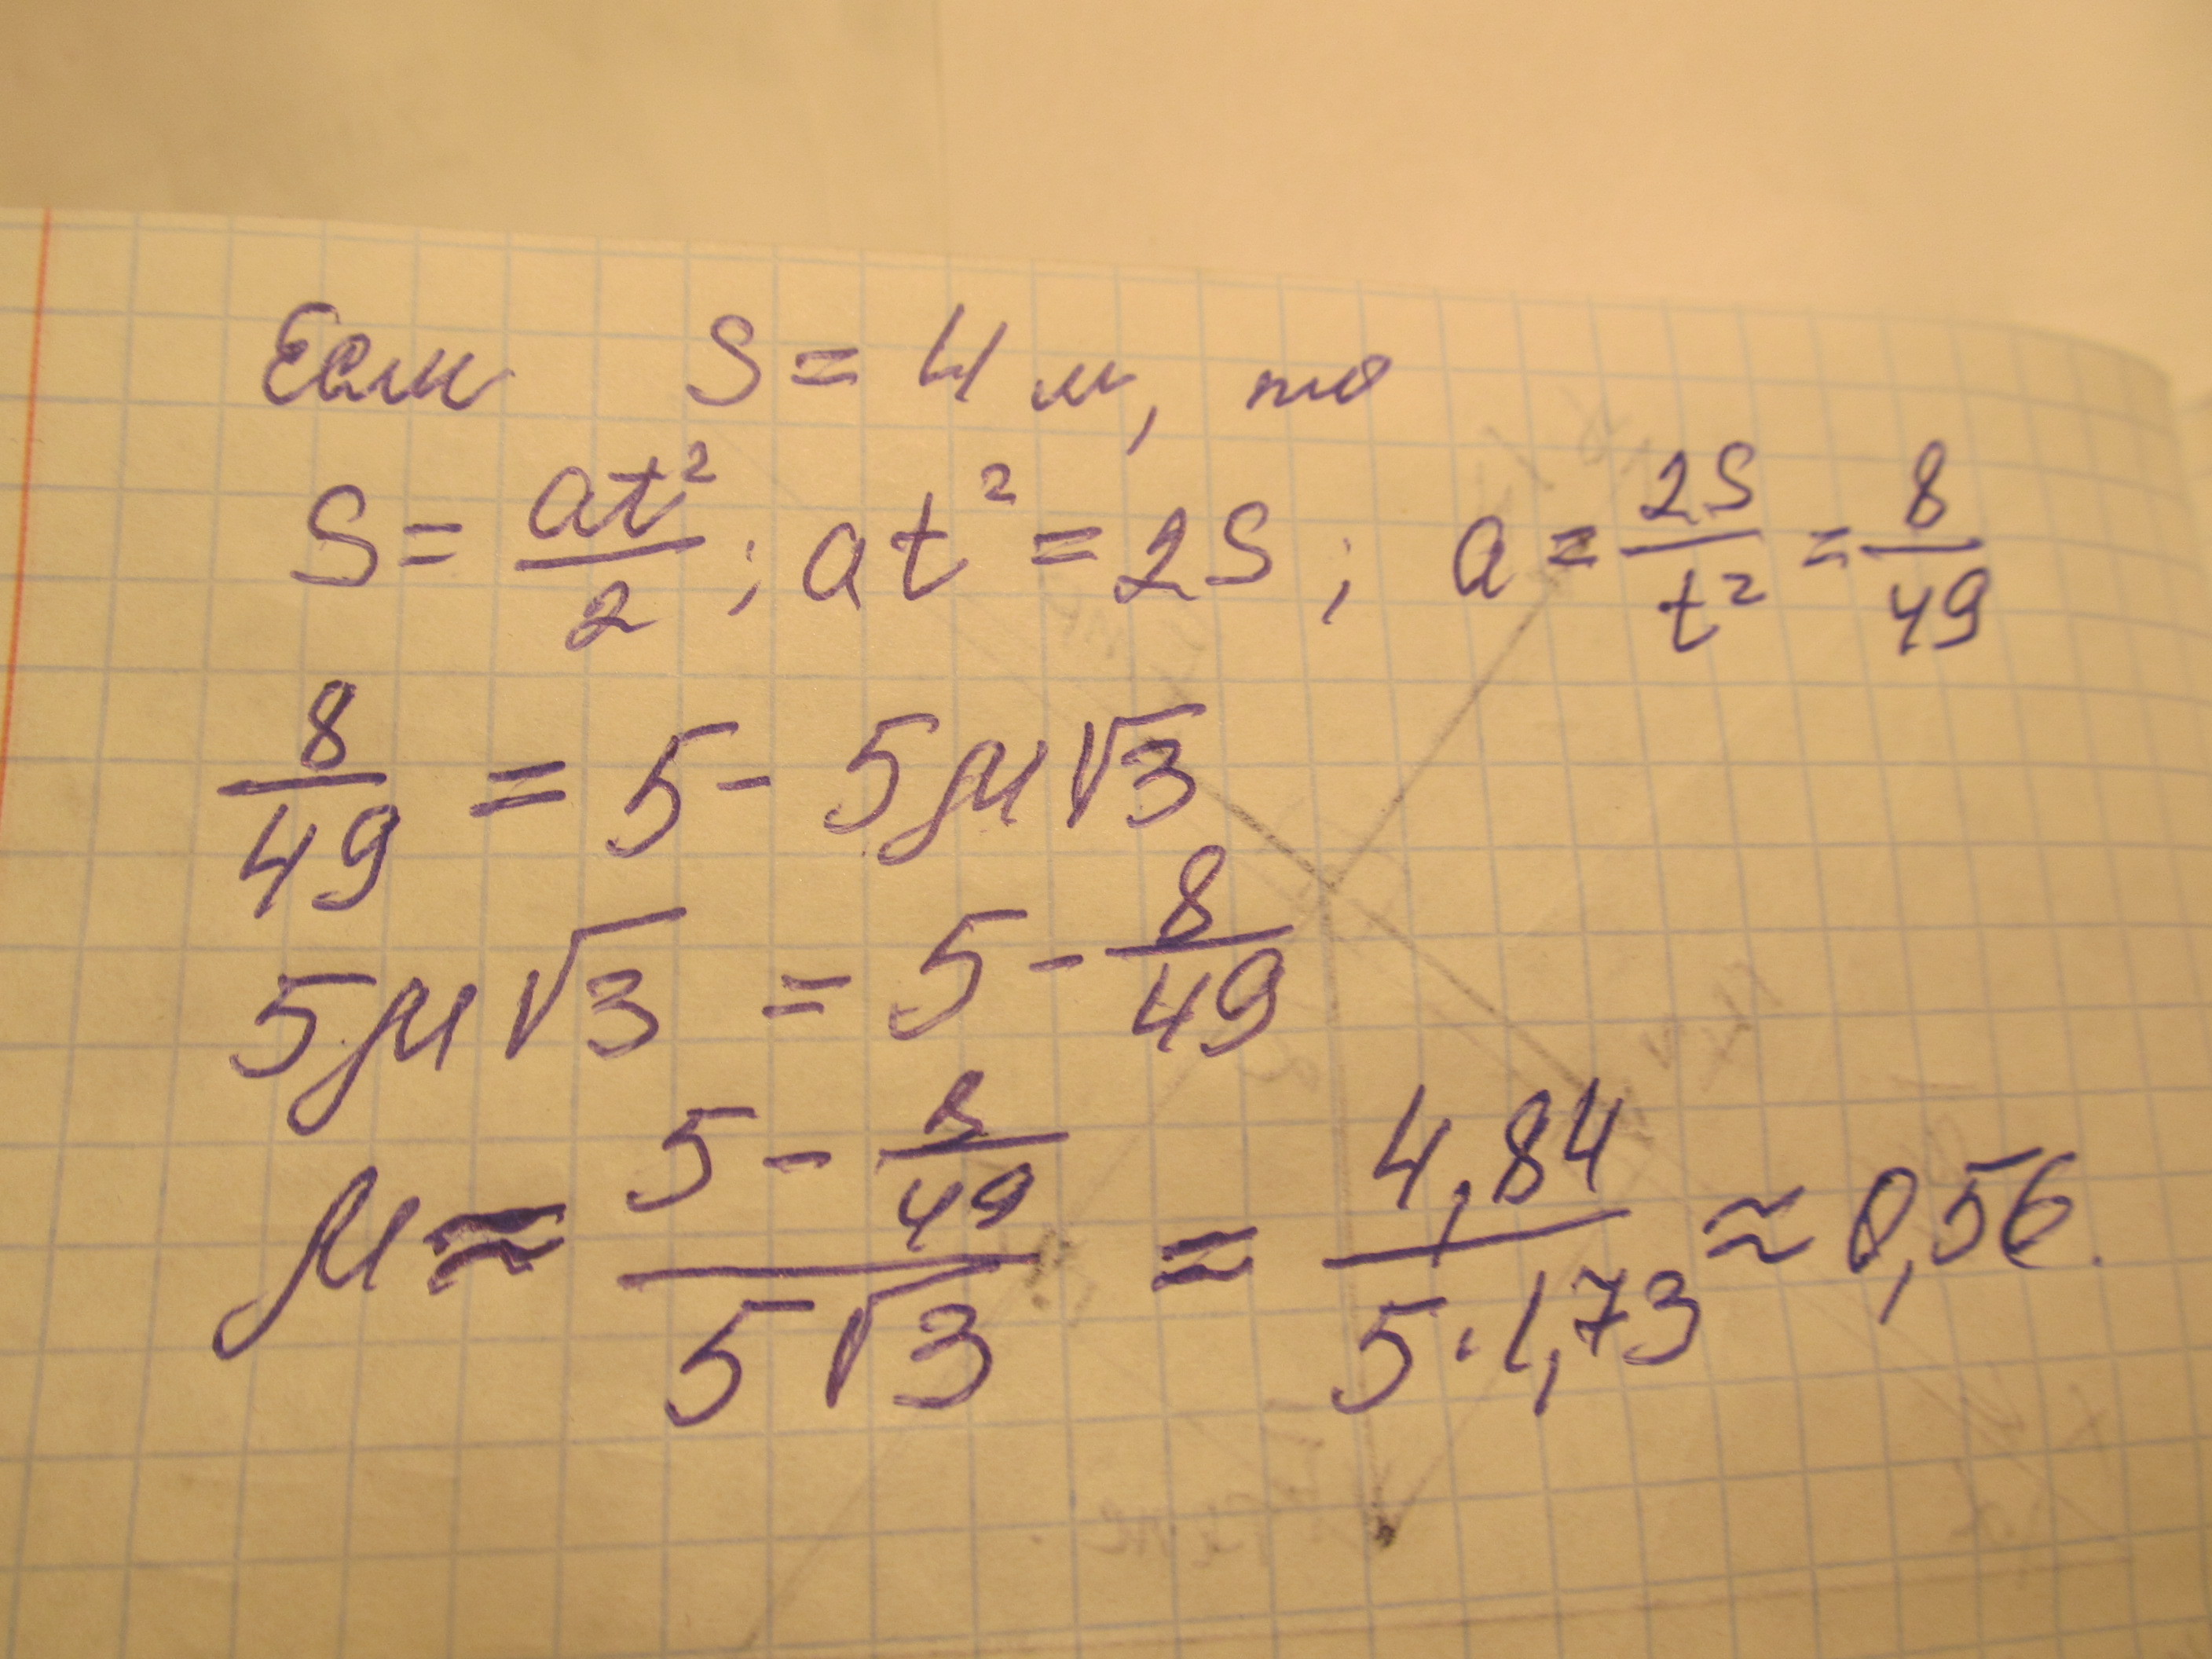 Если S = 4 м, то
S = at²/2 ; at² = 2S ; a = 2S/t² = 8/49
8/49 = 5 - 5μ√3
5μ√3 = 5 - 8/49
μ ≈ (5 - 8/49)/(5√3) ≈ 4,84/(5·1,73) ≈ 0,56.